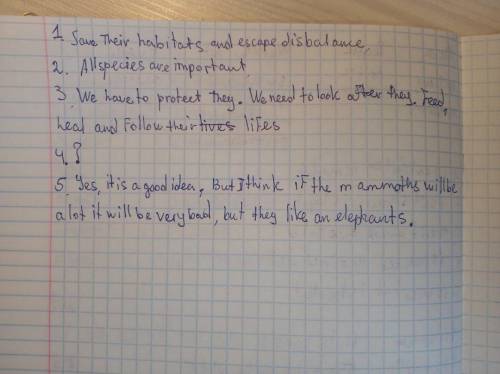 1. Save their habitats and escape disbalance,
2. All species are important
3. We have to protect they. We need to look after they. Feed,
heal and follow their lives lifes
4. }
5. Yes, it is a good idea, But I think if the mammoths will be
a lot it will be very bad, but they like an elephants.